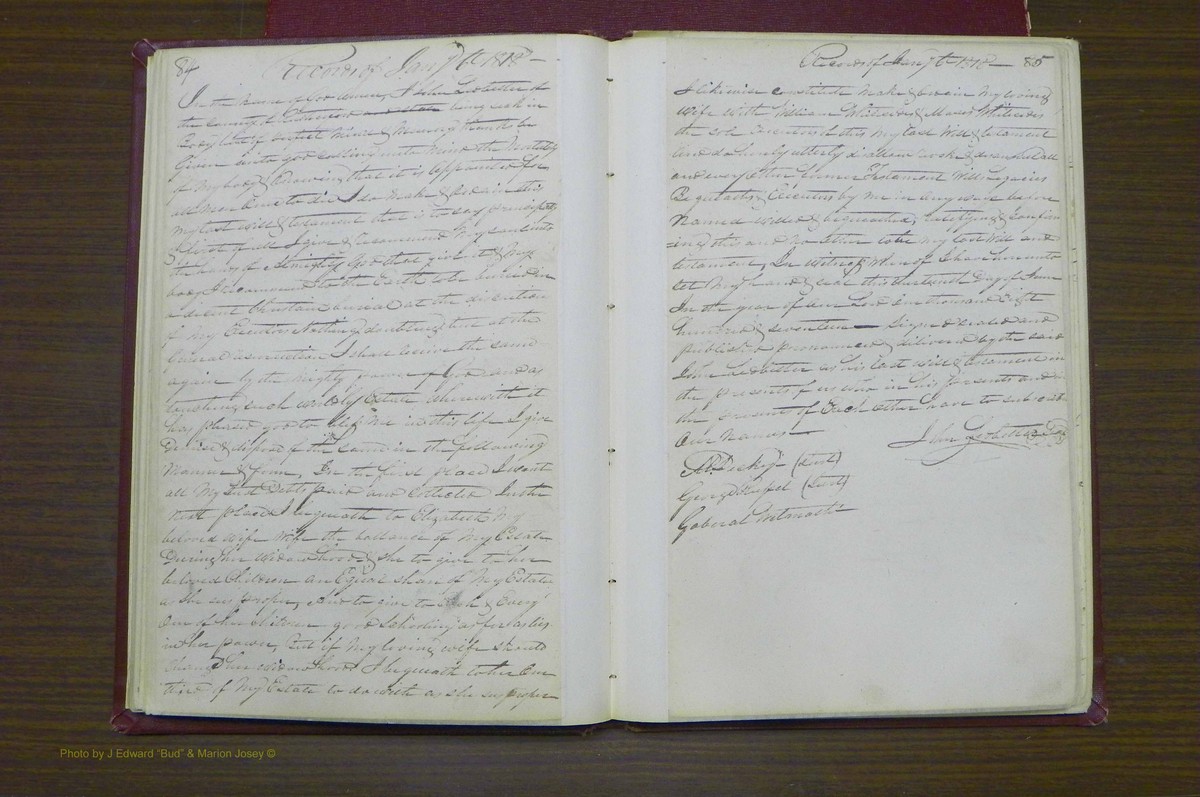 84 Records of Jany 6th 1818
In the Name of God Amen, I John Ledbetter of
the County of being sick in
Body but of perfect mind & Memory thanks be
Given unto god calling unto mind the Mortality
of My body & knowing that it is appointed for
all Men Once to die I do make & ordain this
my last will & testament that is to say principally
& first of all I give & Recommend My soul into
the hands of Almighty God that give it & My
body I recommend to the Earth to be buried in
a decent Christian burial at the discretion
of My Executors Nothing doubting but at the
General resurrection I shall receive the same
again by the Mighty power of God and as
touching such worldly Estate wherewith it
has pleased god to bless me in this life I give
Demise & dispose of the same in the following
Manner & form, In the first place I want
all My Just Debts paid and collected In the
next place I bequeath to Elizabeth My
beloved wife wife the ballance of My Estate
During her widowhood & she to give to her
beloved Children an Equal share of My Estate
as she sees proper, and to give to Each & Every
One of her Children good schooling as far as lies
in her power, but if My loving wife should
Change her widowhood I bequeath to her One
third of My Estate to do with as she sees proper
Records of Jany 6th 1818 85
I likewise constitute make & ordain My loving
wife with William Whitesides &
the sole Executors of this my last Will & testament
and do hereby utterly disallow revoke & disannul all
and every other former Testament Wills Legacies
Bequests & Executors by me in any wise before
Named willed & bequeathed, ratifying & confirm
=ing this and no other to be my last Will and
testament, In witness whereof I have hereunto
set My hand & seal this day of June
In the year of our Lord One thousand Eight
hundred & seventeen Signed sealed and
published pronounced & delivered by the said
John Ledbetter as his last will & testament in
the presents of us who in his presents and in
the presents of Each other have to subscribed
Our Names
John Ledbetter
(Jurt)
George (Jurt)
Gaberal
Photo by J Edward "Bud" & Marion Josey ©